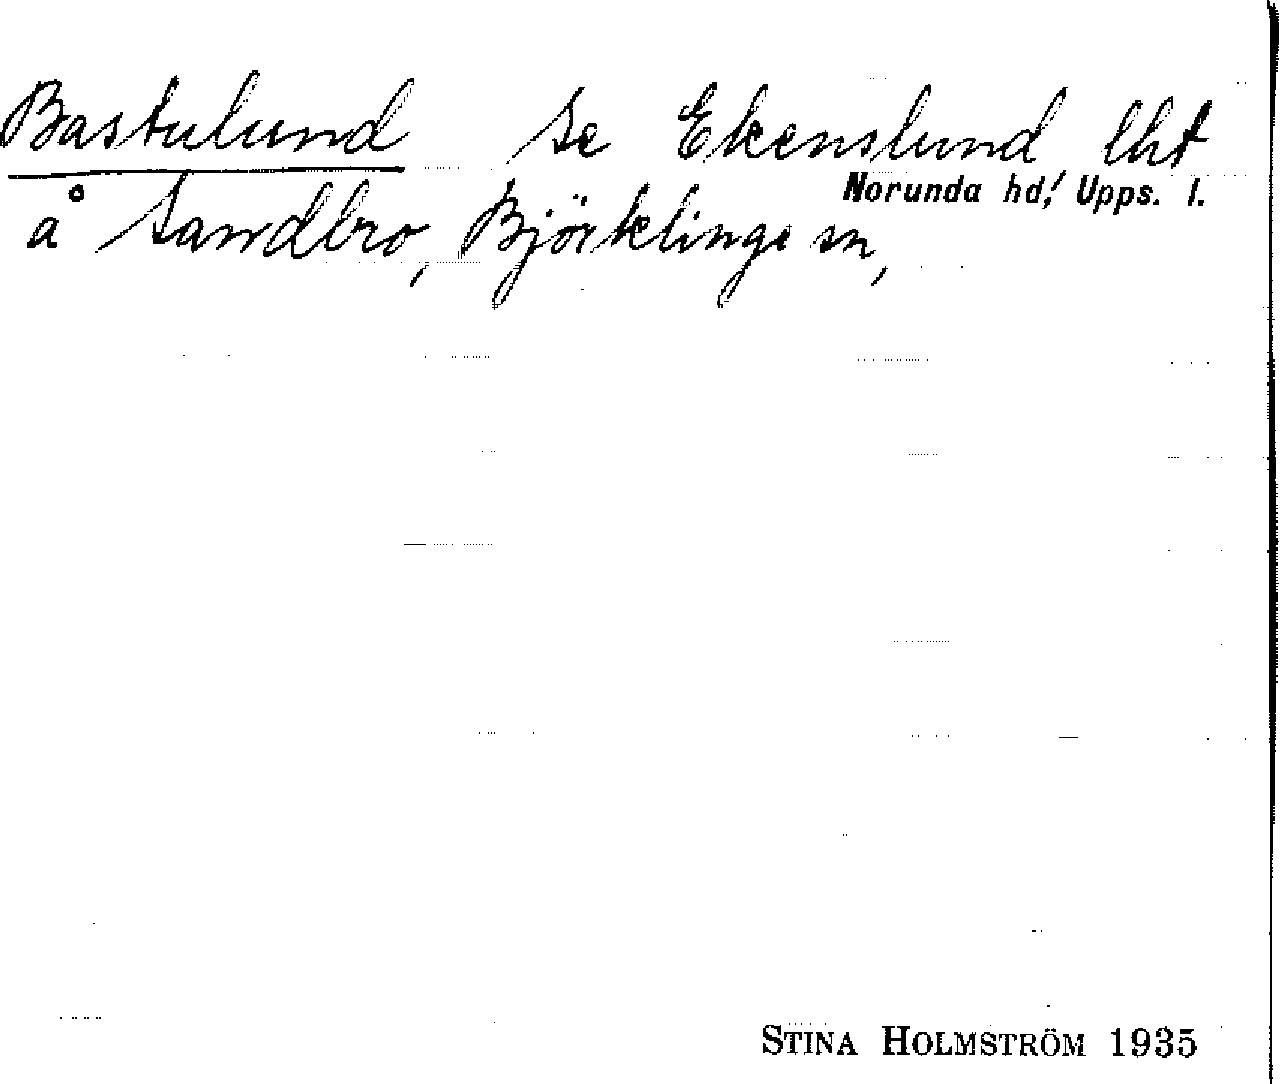 Bastulund se Ekenslund lht
Norunda hd, Upps. l.
å Sandbro, Björklinge sn,
STINA HOLMSTRÖM 1935